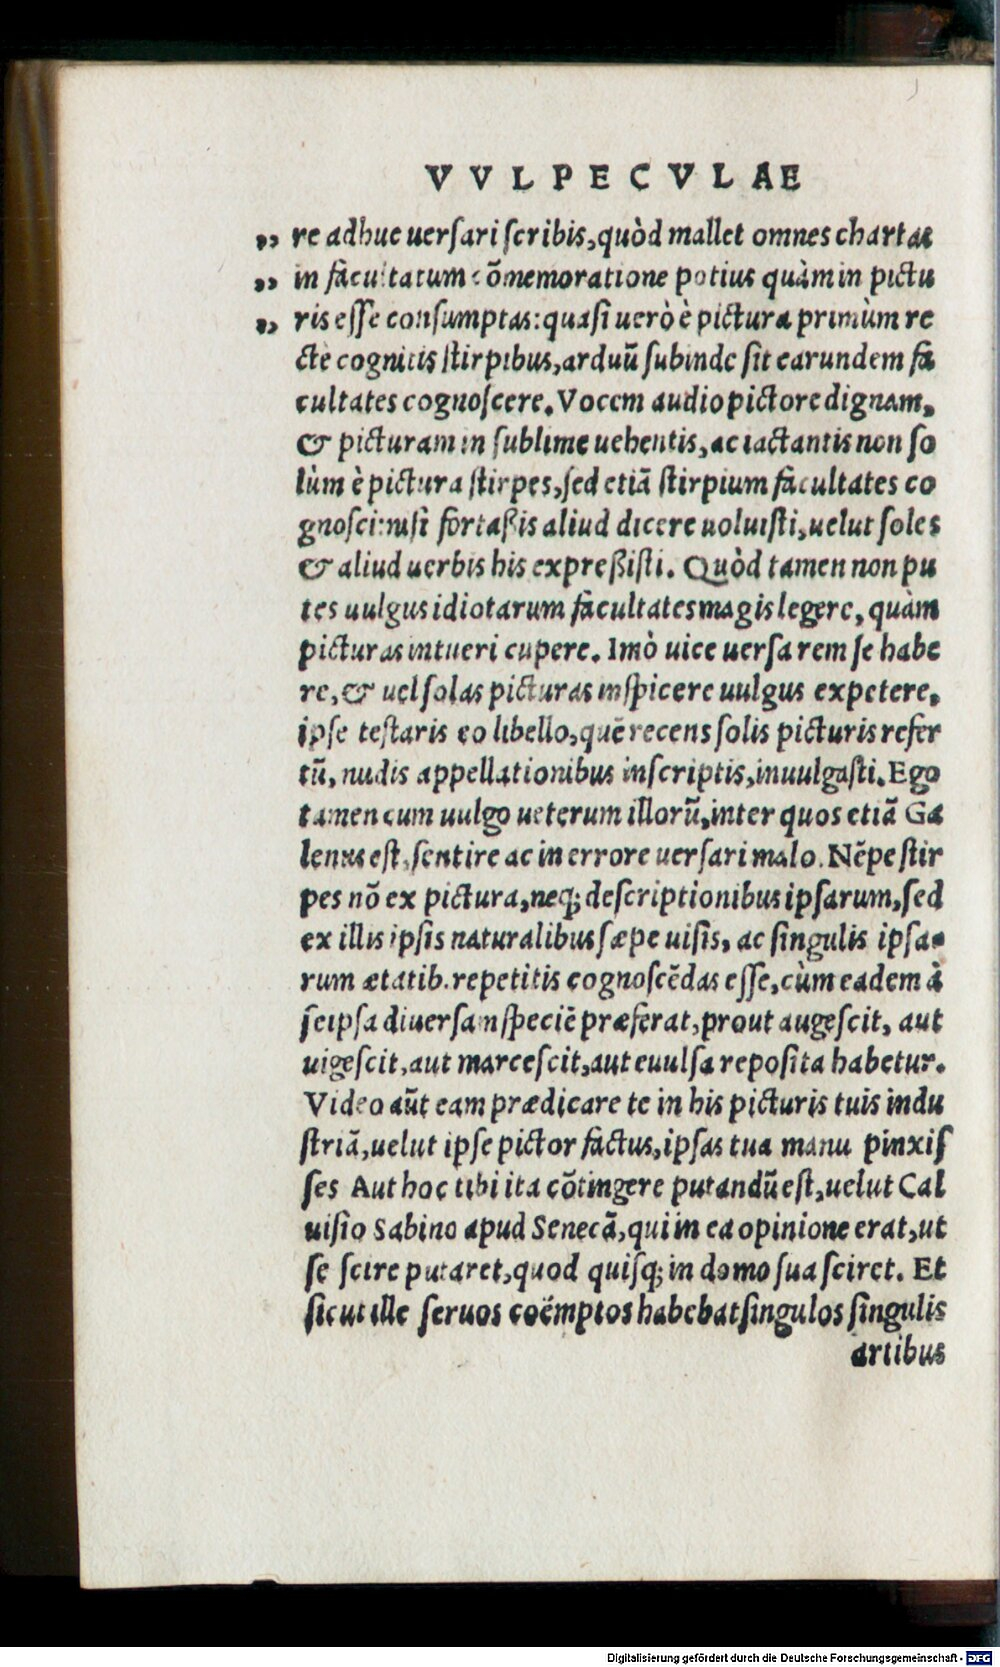 VVLPECVLAE
„ re adhuc uerſari ſcribis, quòd mallet omnes chartas
„ in facultatum cõmemoratione potius quàm in pictu
„ ris eſſe conſumptas: quaſi uerò è pictura primùm re
cte cognitis ſtirpibus, arduũ ſubinde ſit earundem fa
cultates cognoſcere. Vocem audio pictore dignam,
& picturam in ſublime uehentis, ac iactantis non ſo
lùm è pictura ſtirpes, ſed etiã ſtirpium facultates co
gnoſci: niſi fortaßis aliud dicere uoluiſti, uelut ſoles
& aliud uerbis his expreßiſti. Quòd tamen non pu
tes uulgus idiotarum facultates magis legere, quàm
picturas intueri cupere. Imò uice uerſa rem ſe habe
re, & uel ſolas picturas inſpicere uulgus expetere,
ipſe teſtaris eo libello, quẽ recens ſolis picturis refer
tũ, nudis appellationibus inſcriptis, inuulgaſti. Ego
tamen cum uulgo ueterum illorũ, inter quos etiã Ga
lenus eſt, ſentire ac in errore uerſari malo. Nẽpe ſtir
pes nõ ex pictura, neq; deſcriptionibus ipſarum, ſed
ex illis ipſis naturalibus ſæpe uiſis, ac ſingulis ipſa-
rum ætatib. repetitis cognoſcẽdas eſſe, cùm eadem à
ſeipſa diuerſam ſpeciẽ præferat, prout augeſcit, aut
uigeſcit, aut marceſcit, aut euulſa repoſita habetur.
Video aũt eam prædicare te in his picturis tuis indu
ſtriã, uelut ipſe pictor factus, ipſas tua manu pinxiſ
ſes Aut hoc tibi ita cõtingere putandũ eſt, uelut Cal
uiſio Sabino apud Senecã, qui in ea opinione erat, ut
ſe ſcire putaret, quod quiſq; in domo ſua ſciret. Et
ſicut ille ſeruos coëmptos habebat ſingulos ſingulis
artibus
Digitalisierung gefördert durch die Deutsche Forschungsgemeinschaft - DFG